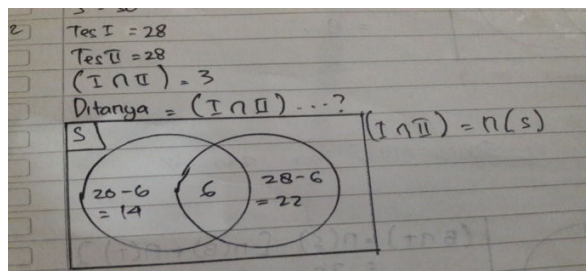 2
Tes I = 28
Tes II = 28
(I ∩ II) = 3
Ditanya = (I ∩ II) ...?
S
(I ∩ II) = n(s)
20-6
= 14
6
28-6
= 22